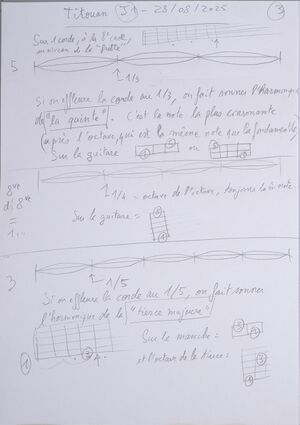 Titouan J1 - 28/08/2025 3
Sur 1 corde, à la 8e corde,
au niveau de la "frette"
5
1/3
Si on effleure la corde au 1/3, on fait sonner l'harmonique
de "la quinte". C'est la note la plus consonante
(après l'octave, qui est la même note que la fondamentale)
Sur la guitare ou
8ve
di 8ve
=
1/4 = octave de l'octave, toujours la m note.
Sur la guitare =
1
3
1/5
Si on effleure la corde au 1/5, on fait sonner
l'harmonique de la "tierce majeure"
Sur le manche =
et l'octave de la tierce =
1
3